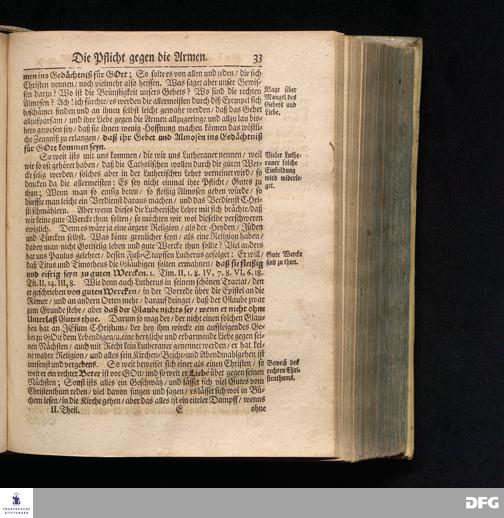 Die Pflicht gegen die Armen. 33
men ins Gedächtniß für GOtt; So solte es von allen und jeden / die sich
Christen nennen / noch vielmehr also heissen. Was saget aber unser Gewis-
sen darzu? Wo ist die Brünstigkeit unsers Gebets? Wo sind die rechten
Almosen? Ach! ich fürchte / es werden die allermeisten durch diß Exempel sich
beschämet finden und an ihnen selbst leicht gewahr werden / daß das Gebet
allzusparsam / und ihre Liebe gegen die Armen allzugeringe und allzu lau bis-
hero gewesen sey / daß sie ihnen wenig Hoffnung machen können das tröstli-
che Zeugniß zu erlangen / daß ihr Gebet und Almosen ins Gedächtniß
für GOtt kommen seyn.
Klage über
Mangel des
Gebets und
Liebe.
So weit ists mit uns kommen / die wir uns Lutheraner nennen / weil
wir so oft gehöret haben / daß die Catholischen wollen durch die guten Wer-
cke selig werden / solches aber in der Lutherischen Lehre verneinet wird / so
dencken da die allermeisten: Es sey nicht einmal ihre Pflicht / Gutes zu
thun; Wenn man so emsig beten / so fleißig Almosen geben würde / so
dürffte man leicht ein Verdienst daraus machen / und das Verdienst CHri-
sti schmählern. Aber wenn dieses die Lutherische Lehre mit sich brächte / daß
wir keine gute Wercke thun solten / so möchten wir wol dieselbe verschweren
ewiglich. Denn es wäre ja eine ärgere Religion / als der Heyden / Jüden
und Türcken selbst. Was könte greulicher seyn / als eine Religion haben /
dabey man nicht Gottselig leben und gute Wercke thun solte? Viel anders
hat uns Paulus gelehret / dessen Fuß-Stapffen Lutherus gefolget: Er will /
daß Titus und Timotheus die Gläubigen solten ermahnen / daß sie fleißig
und eifrig seyn zu guten Wercken. 1. Tim. II, 1. 8. IV, 7. 8. VI, 6. 18.
Tit. II, 14. III, 8. Wie denn auch Lutherus in seinem schönen Tractat / den
er geschrieben von guten Wercken / in der Vorrede über die Epistel an die
Römer / und an andern Orten mehr / darauf dringet / daß der Glaube zwar
zum Grunde stehe / aber daß der Glaube nichts sey / wenn er nicht ohne
Unterlaß Gutes thue. Darum so mag der / der nicht einen solchen Glau-
ben hat an JEsum Christum / der bey ihm wircke ein auffsteigendes Ge-
bet zu GOtt dem Lebendigen / u. eine hertzliche und erbarmende Liebe gegen sei-
nen Nächsten / auch mit Recht kein Lutheraner genennet werden / er hat kei-
ne wahre Religion / und alles sein Kirchen-Beicht- und Abendmahlgehen ist
umsonst und vergebens. So weit beweiset sich einer als einen Christen / so
weit er ein rechter Beter ist vor GOtt / und so weit er Liebe übet gegen seinen
Nächsten; Sonst ists alles ein Geschwätz / und lässet sich viel Gutes vom
Christenthum reden / viel davon singen und sagen / es lässet sich wol in Bü-
chern lesen / in die Kirche gehen / aber das alles ist ein eiteler Dampff / wenns
Vieler Luthe-
raner falsche
Einbildung
wird widerle-
get.
Gute Wercke
sind zu thun.
Beweiß des
rechten Chri-
stenthums.
II. Theil. E ohne
FRANCKESCHE
STIFTUNGEN
DFG